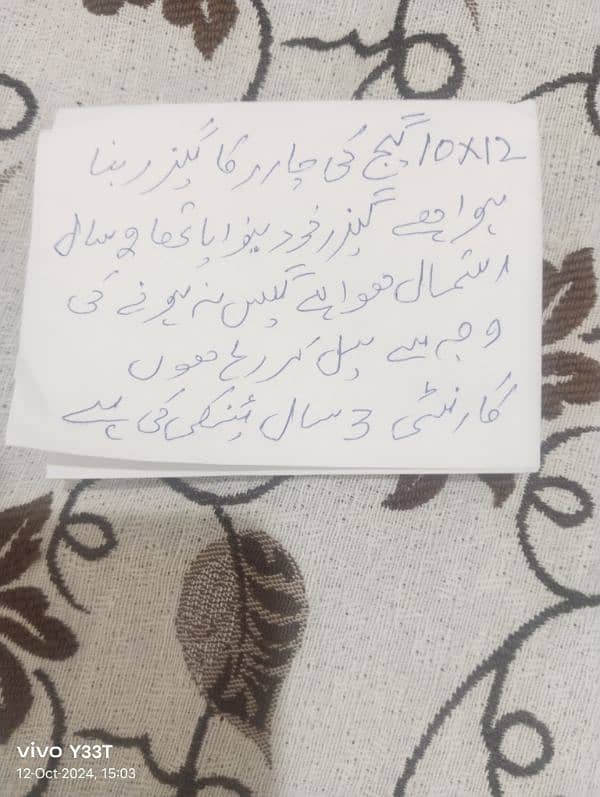 10x12 گیج کی چادر کا گیزر بنا
ہوا ہے گیزر خود بنوایا تھا 2 سال
استمال ہوا ہے گیس نہ ہونے کی
وجہ سے سیل کر رہا ہوں
گارنٹی 3 سال ٹینکی کی ہے
vivo Y33T
12-Oct-2024, 15:03